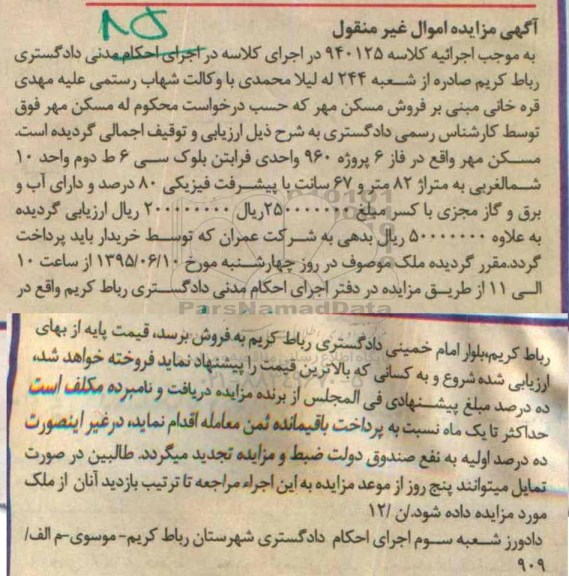 آگهی مزایده اموال غیر منقول
به موجب اجرائیه کلاسه ۹۴۰۱۲۵ در اجرای کلاسه در اجرای احکام مدنی دادگستری
رباط کریم صادره از شعبه ۲۴۴ له لیلا محمدی با وکالت شهاب رستمی علیه مهدی
قره خانی مبنی بر فروش مسکن مهر که حسب درخواست محکوم له مسکن مهر فوق
توسط کارشناس رسمی دادگستری به شرح ذیل ارزیابی و توقیف اجمالی گردیده است.
مسکن مهر واقع در فاز ۶ پروژه ۹۶۰ واحدی فرابتن بلوک سی ۶ ط دوم واحد ۱۰
شمالغربی به متراژ ۸۲ متر و ۶۷ سانت با پیشرفت فیزیکی ۸۰ درصد و دارای آب و
برق و گاز مجزی با کسر مبلغ ۲۵۰۰۰۰۰۰۰ ریال ۲۰۰۰۰۰۰۰۰ ریال ارزیابی گردیده
به علاوه ۵۰۰۰۰۰۰۰ ریال بدهی به شرکت عمران که توسط خریدار باید پرداخت
گردد.مقرر گردیده ملک موصوف در روز چهارشنبه مورخ ۱۳۹۵/۰۶/۱۰ از ساعت ۱۰
الی ۱۱ از طریق مزایده در دفتر اجرای احکام مدنی دادگستری رباط کریم واقع در
ParsNamadData
رباط کریم،بلوار امام خمینی دادگستری رباط کریم به فروش برسد، قیمت پایه از بهای
ارزیابی شده شروع و به کسانی که بالاترین قیمت را پیشنهاد نماید فروخته خواهد شد،
ده درصد مبلغ پیشنهادی فی المجلس از برنده مزایده دریافت و نامبرده مکلف است
حداکثر تا یک ماه نسبت به پرداخت باقیمانده ثمن معامله اقدام نماید، درغیر اینصورت
ده درصد اولیه به نفع صندوق دولت ضبط و مزایده تجدید میگردد. طالبین در صورت
تمایل میتوانند پنج روز از موعد مزایده به این اجراء مراجعه تا ترتیب بازدید آنان از ملک
مورد مزایده داده شود.ن /۱۲
دادورز شعبه سوم اجرای احکام دادگستری شهرستان رباط کریم- موسوی-م الف/
۹۰۹